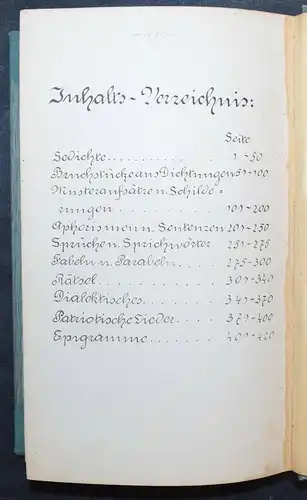 Inhalts-Verzeichnis:
Seite
Gedichte........... 1-50
Bruchstücke aus Dichtungen 51-100
Musteraufsätze u. Schilde=
rungen ........ 101-200
Aphorismen u. Sentenzen 201-250
Sprüche u. Sprichwörter 251-275
Fabeln u. Parabeln.... 275-300
Rätsel........... 301-340
Dialektisches....... 341-370
Patriotische Lieder.... 371-400
Epigramme........ 401-420